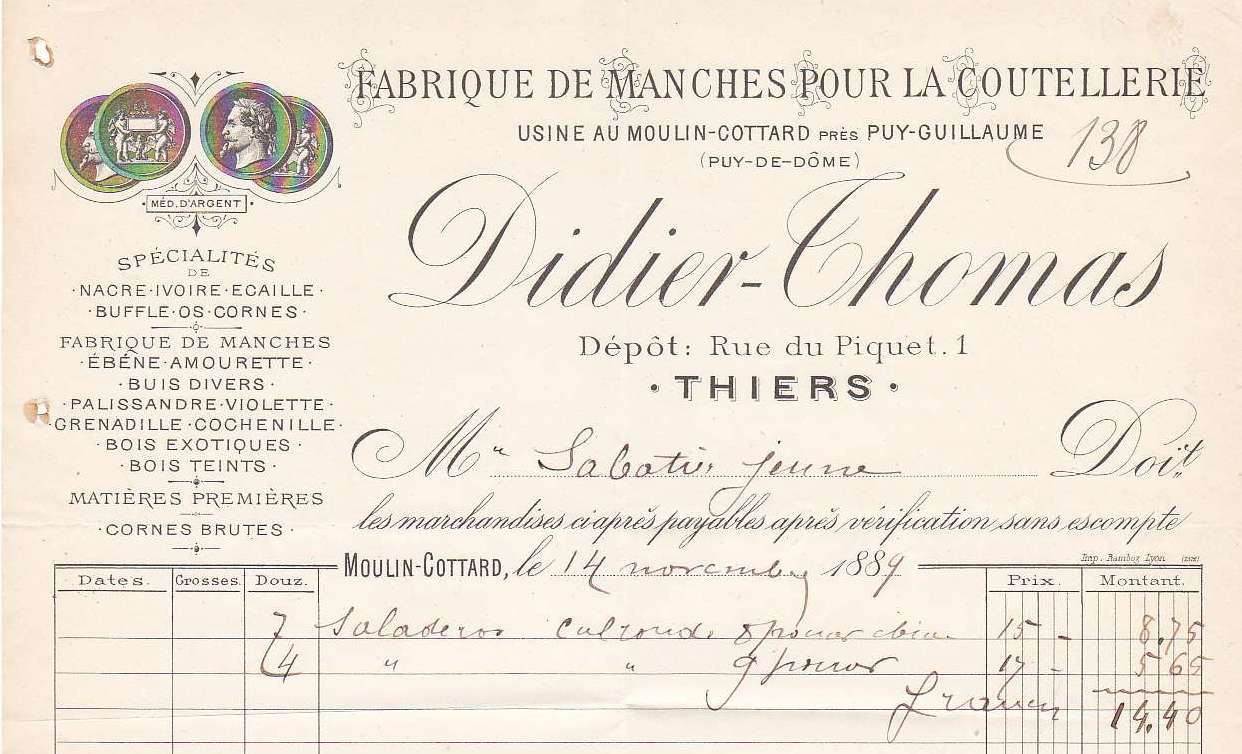 FABRIQUE DE MANCHES POUR LA COUTELLERIE
USINE AU MOULIN-COTTARD PRÈS PUY-GUILLAUME
138
(PUY-DE-DÔME)
MÉD. D'ARGENT
Didier-Thomas
SPÉCIALITÉS
DE
·NACRE·IVOIRE·ECAILLE·
·BUFFLE·OS·CORNES·
FABRIQUE DE MANCHES
·ÉBÈNE·AMOURETTE·
·BUIS DIVERS·
·PALISSANDRE·VIOLETTE·
·GRENADILLE·COCHENILLE·
·BOIS EXOTIQUES·
·BOIS TEINTS·
MATIÈRES PREMIÈRES
·CORNES BRUTES·
Dépôt: Rue du Piquet. 1
·THIERS·
M Sabatier jeune Doit
les marchandises ci après payables après vérification sans escompte
MOULIN-COTTARD, le 14 novembre 1889
Imp. Ramboz Lyon
Dates. Grosses. Douz. Prix. Montant.
7 15 - 8.75
4 " " 9 17 - 5 65
francs 14.40